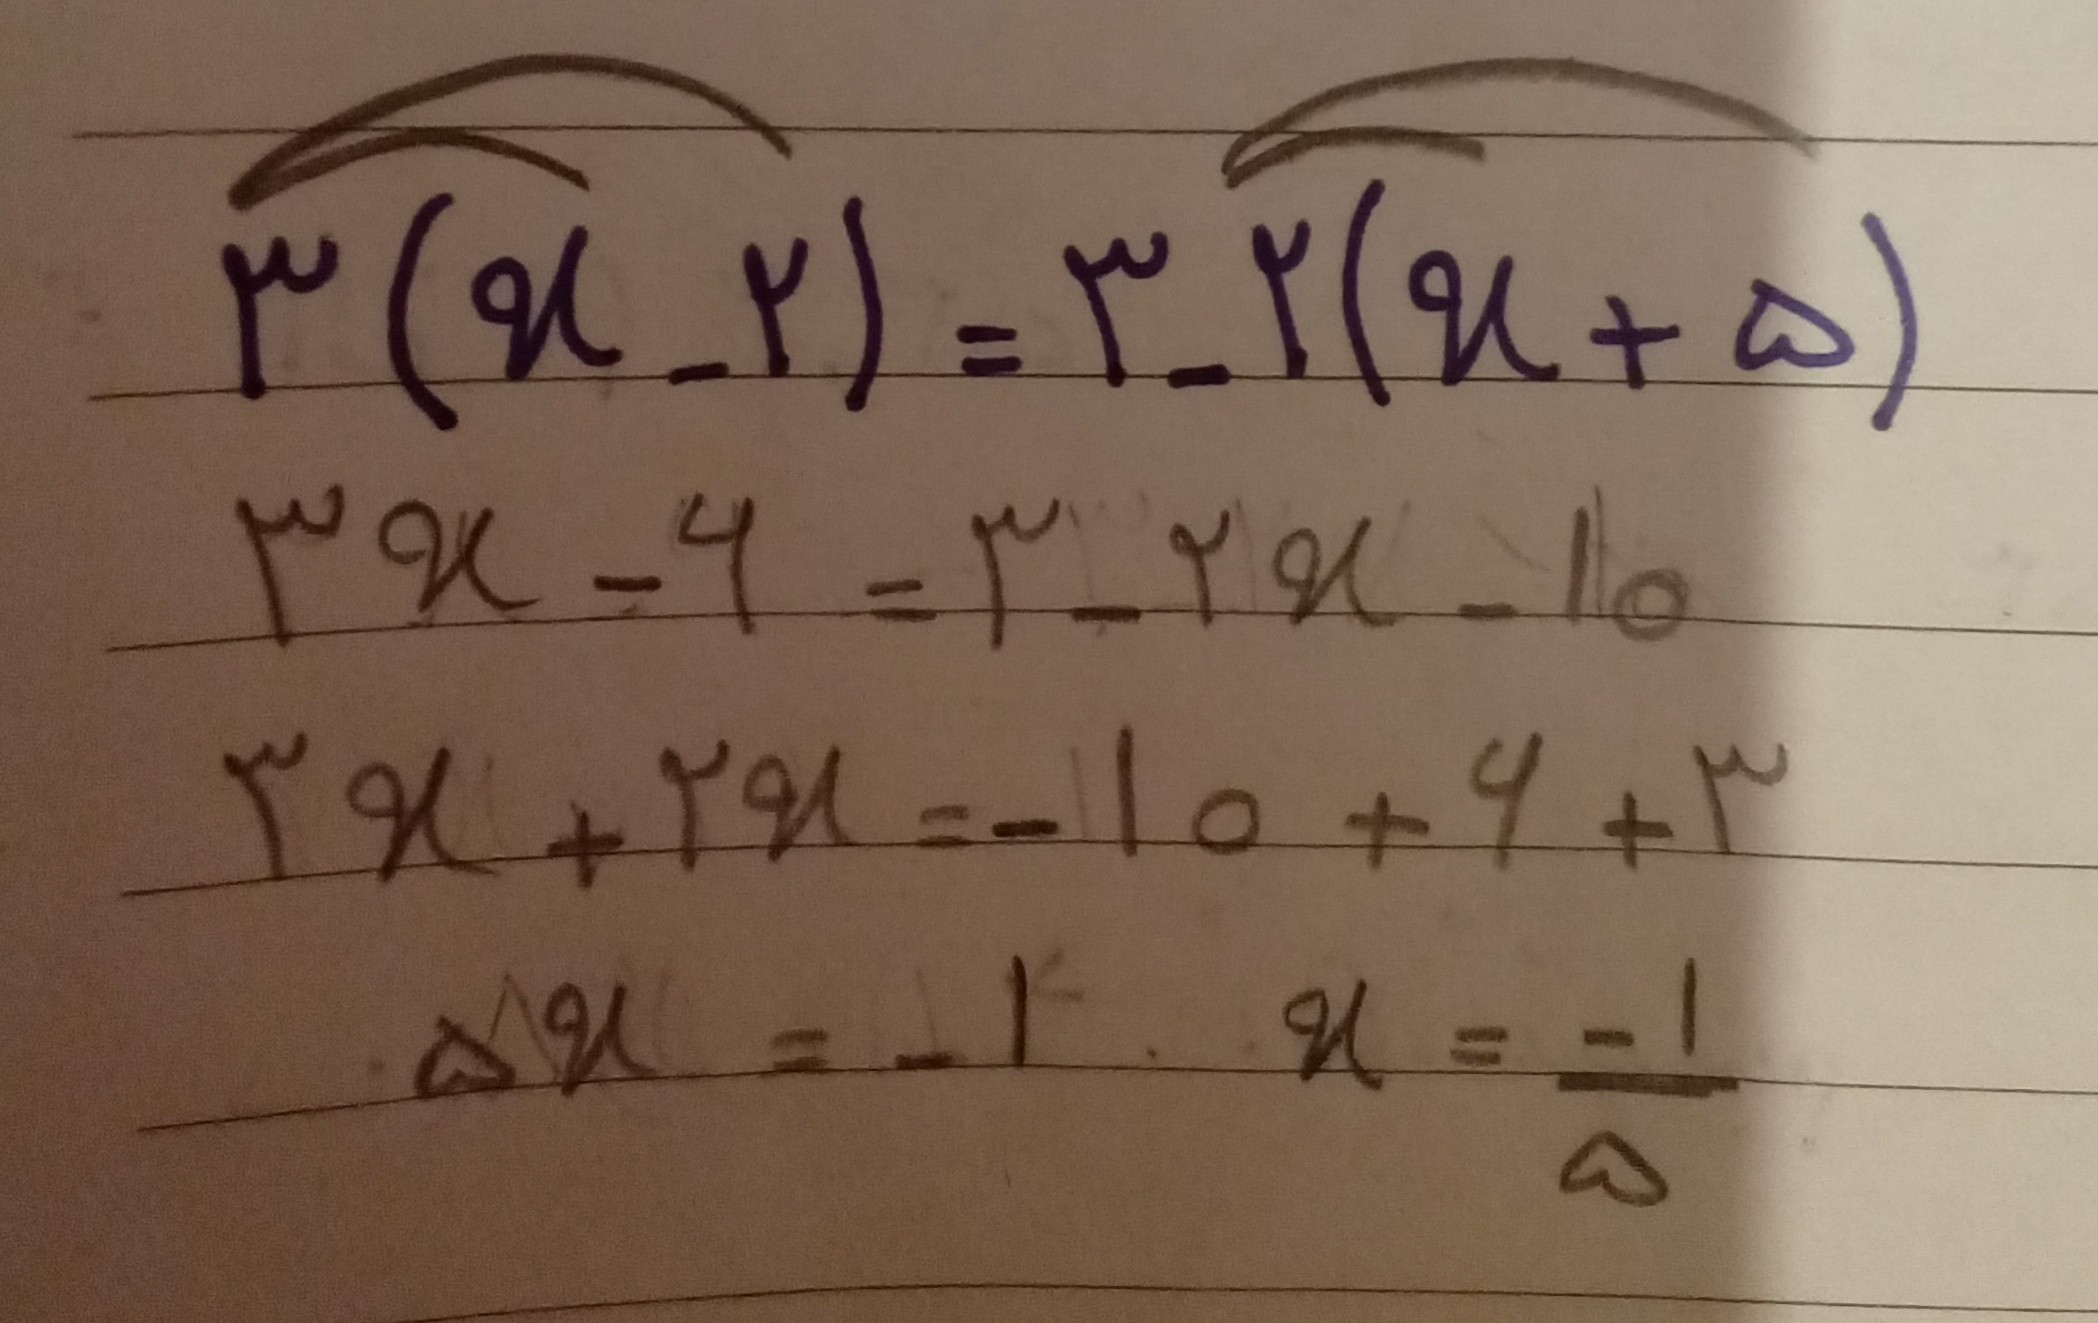 ۳(x-۲)=۳-۲(x+۵)
۳x-۶=۳-۲x-۱۰
۳x+۲x=-۱۰+۶+۳
۵x=-۱ x=-۱/۵